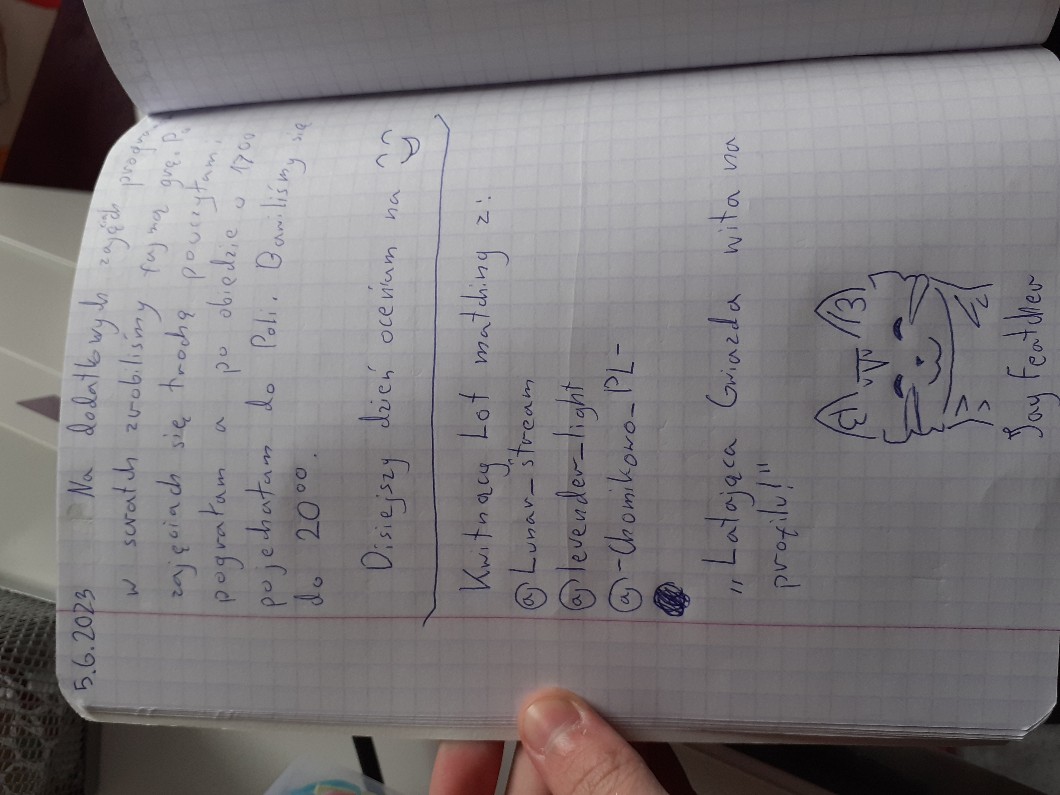 5.6.2023 Na dodatkowych zajęciach
w scratch zrobiliśmy fajną grę. Po
zajęciach się trochę pouczyłam,
pograłam a po obiedzie o 17⁰⁰
pojechałam do Poli. Bawiliśmy się
do 20⁰⁰.
Disiejszy dzień oceniam na
Kwitnący Lot matching z:
@Lunar_stream
@levender_light
@-Chomikowo_PL-
„Latająca Gwiazda wita na
profilu!"
Jay Featcher